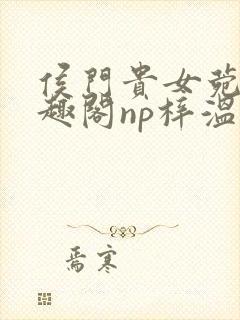 侯門貴女菀
趣閣np梓溫
焉寒